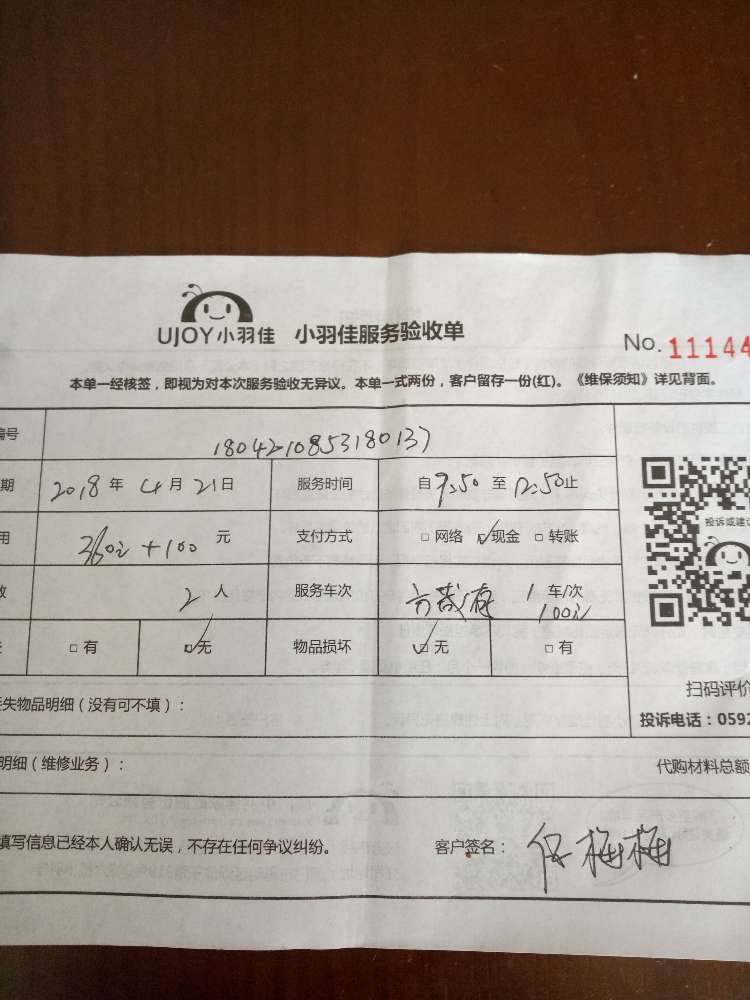 UJOY小羽佳 小羽佳服务验收单
No. 11144
本单一经核签，即视为对本次服务验收无异议。本单一式两份，客户留存一份(红)。《维保须知》详见背面。
编号 1804210853180137
期 2018 年 4 月 21 日 服务时间 自 9:50 至 12:50 止
用 360元 + 100 元 支付方式 □ 网络 ☑ 现金 □ 转账
投诉或建议
数 2 人 服务车次 1 车/次
100元
□ 有 ☑ 无 物品损坏 ☑ 无 □ 有
扫码评价
失物品明细（没有可不填）：
投诉电话：0592
明细（维修业务）： 代购材料总额
填写信息已经本人确认无误，不存在任何争议纠纷。 客户签名： 梅梅